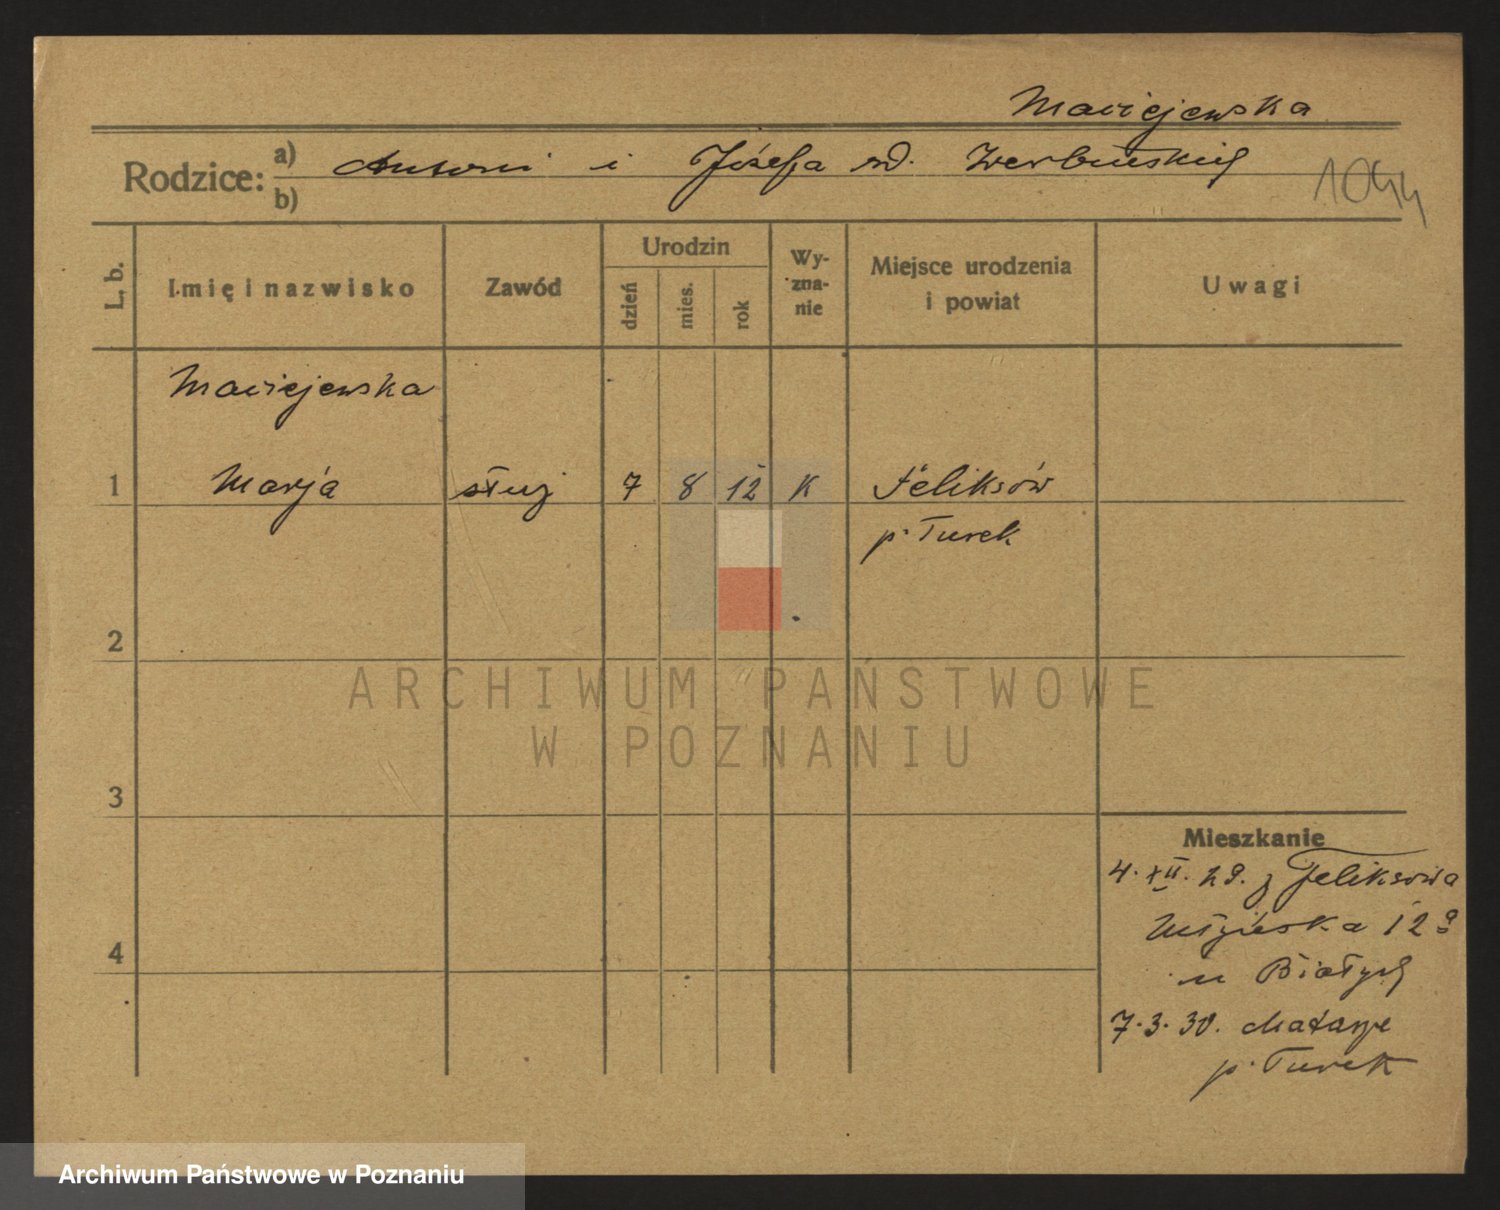 Maciejewska
Rodzice: a) b) Antoni i Józefa zd.
1044
L. b. Imię i nazwisko Zawód Urodzin dzień mies. rok Wy-zna-nie Miejsce urodzenia i powiat Uwagi
Maciejewska
1 Marja służ 7 8 12 K Feliksów
p. Turek
2
ARCHIWUM PAŃSTWOWE
W POZNANIU
3
Mieszkanie
4. XII. 29. z Feliksowa
12a
u Białych
4
7. 3. 30.
p. Turek
Archiwum Państwowe w Poznaniu